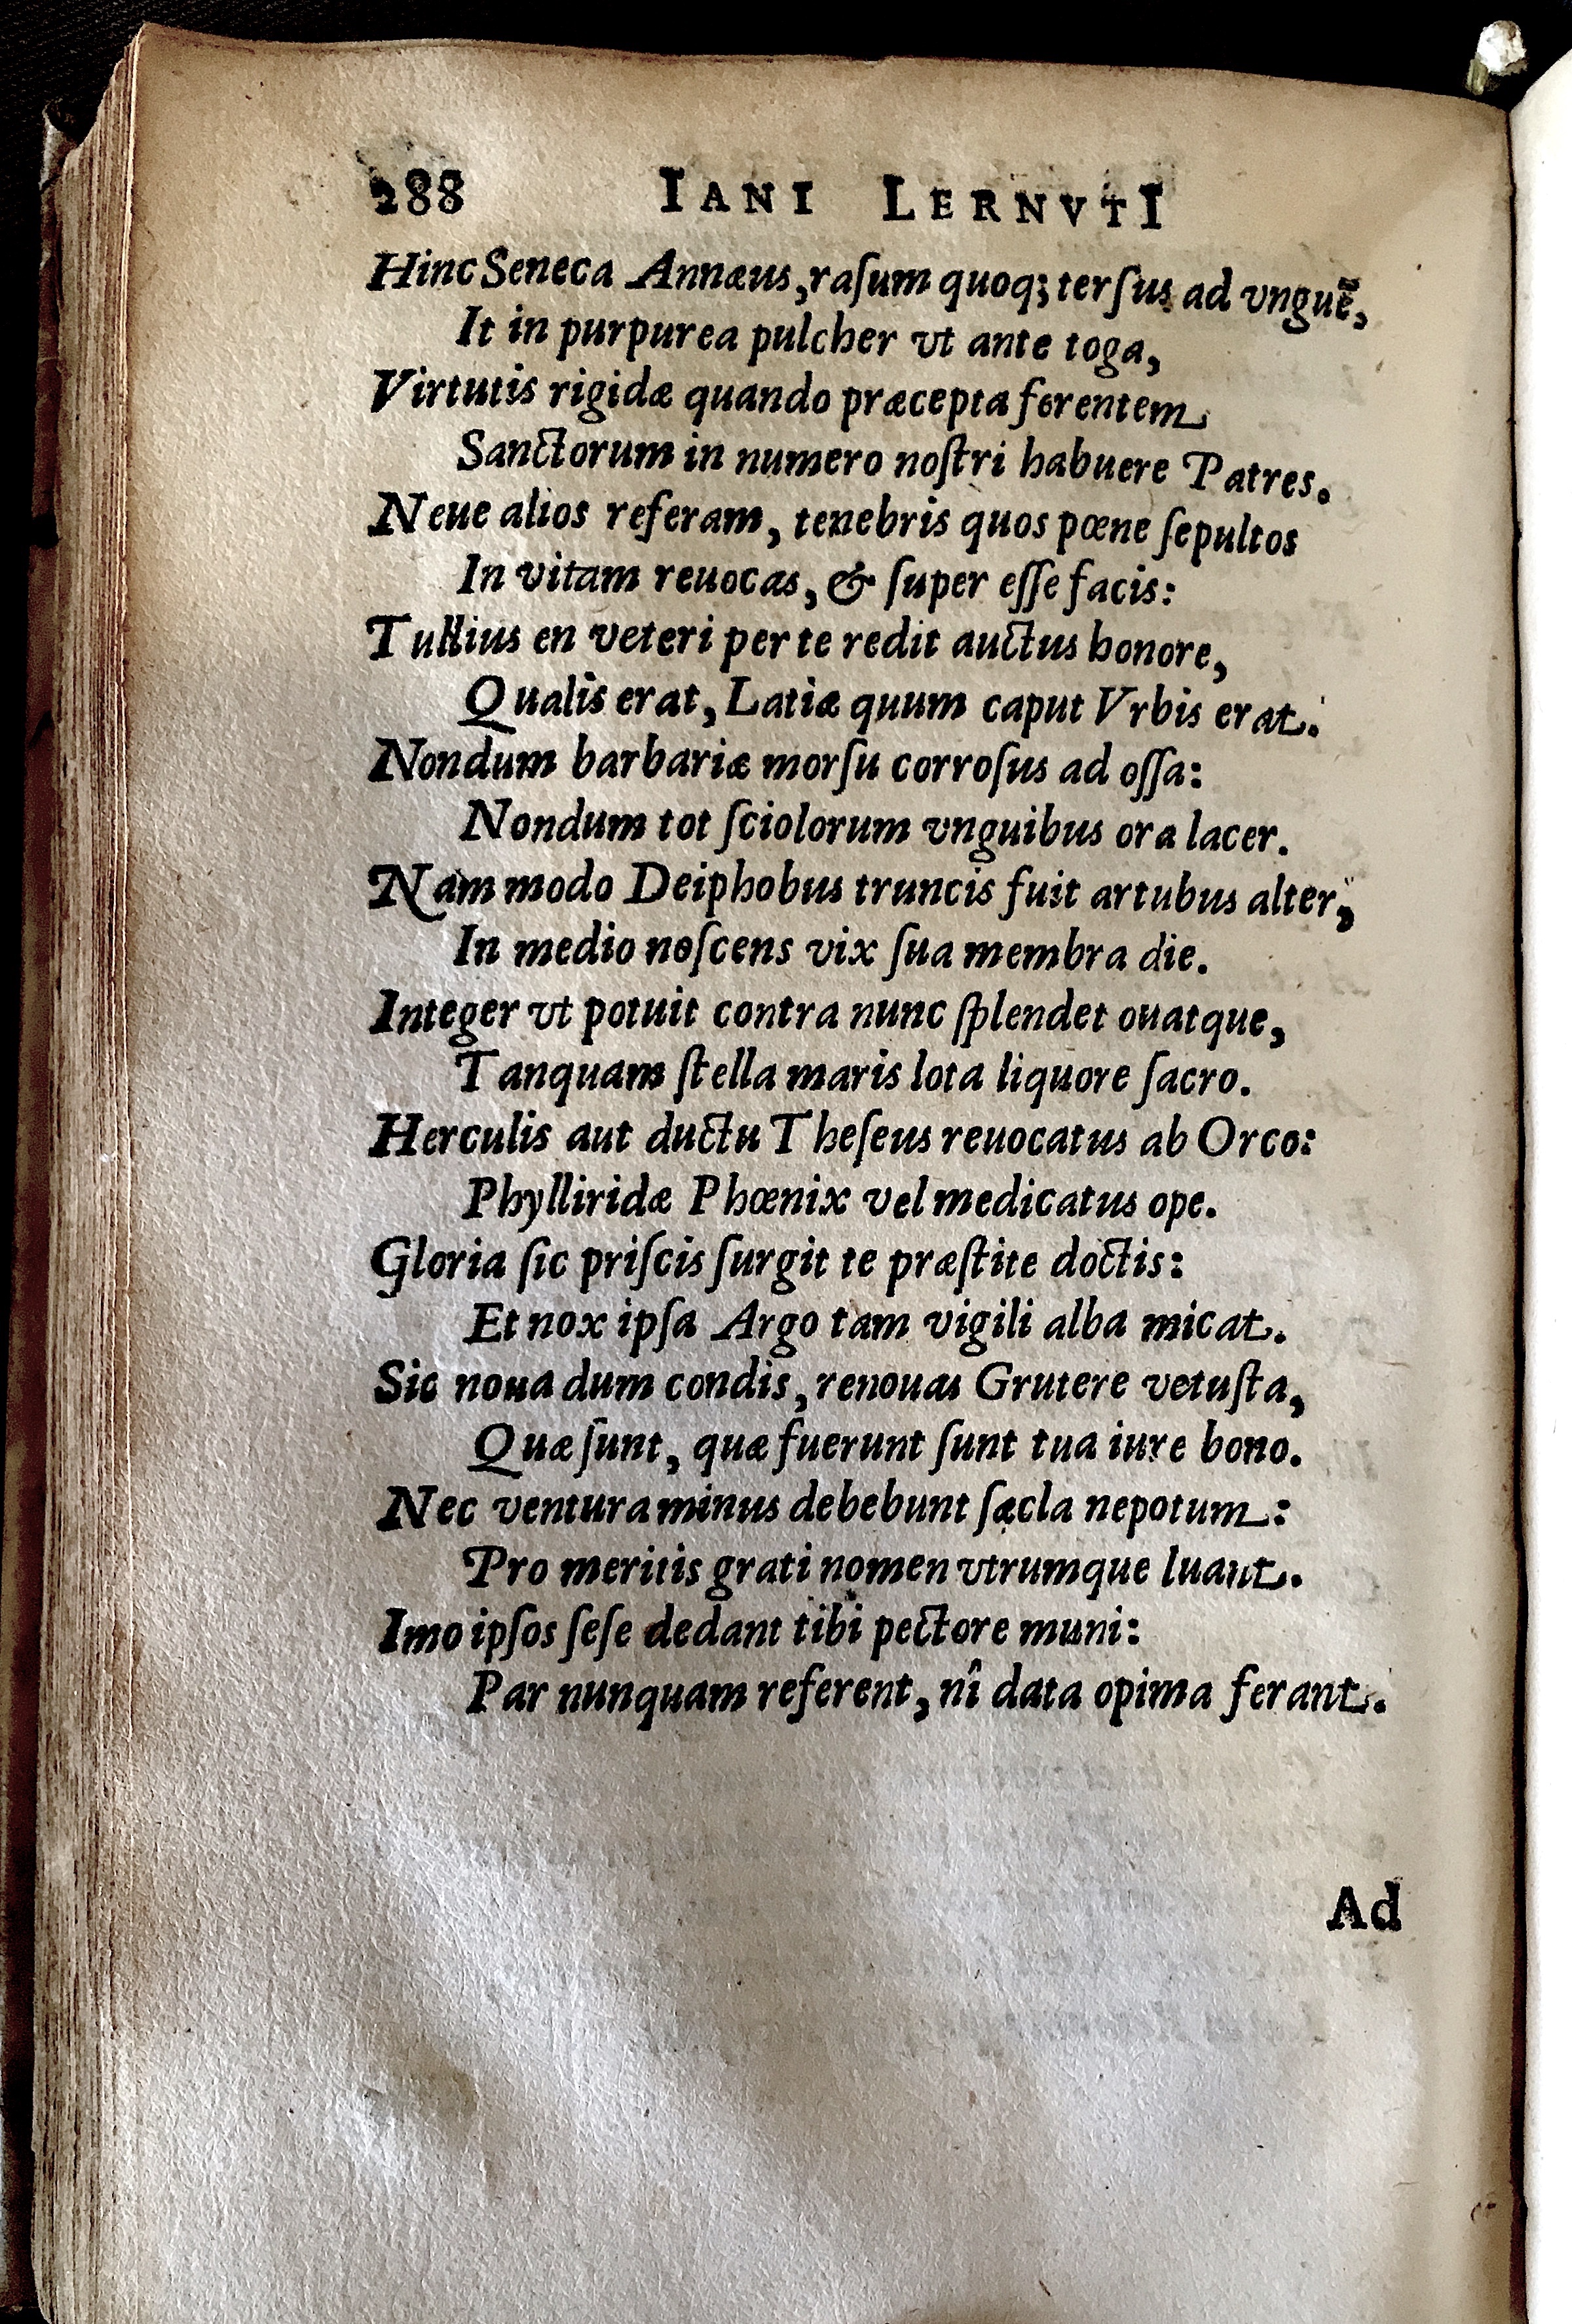 288 IANI LERNVTI
Hinc Seneca Annæus, raſum quoq; terſus ad vnguẽ,
It in purpurea pulcher vt ante toga,
Virtutis rigidæ quando præcepta ferentem
Sanctorum in numero noſtri habuere Patres.
Neue alios referam, tenebris quos pœne ſepultos
In vitam reuocas, & ſuper eſſe facis:
Tullius en veteri per te redit auctus honore,
Qualis erat, Latiæ quum caput Vrbis erat.
Nondum barbariæ morſu corroſus ad oſſa:
Nondum tot ſciolorum vnguibus ora lacer.
Nam modo Deiphobus truncis fuit artubus alter,
In medio noſcens vix ſua membra die.
Integer vt potuit contra nunc ſplendet ouatque,
Tanquam ſtella maris lota liquore ſacro.
Herculis aut ductu Theſeus reuocatus ab Orco:
Phylliridæ Phœnix vel medicatus ope.
Gloria ſic priſcis ſurgit te præſtite doctis:
Et nox ipſa Argo tam vigili alba micat.
Sic noua dum condis, renouas Grutere vetuſta,
Quæ ſunt, quæ fuerunt ſunt tua iure bono.
Nec ventura minus debebunt ſæcla nepotum:
Pro meritis grati nomen vtrumque luant.
Imo ipſos ſeſe dedant tibi pectore muni:
Par nunquam referent, nî data opima ferant.
Ad